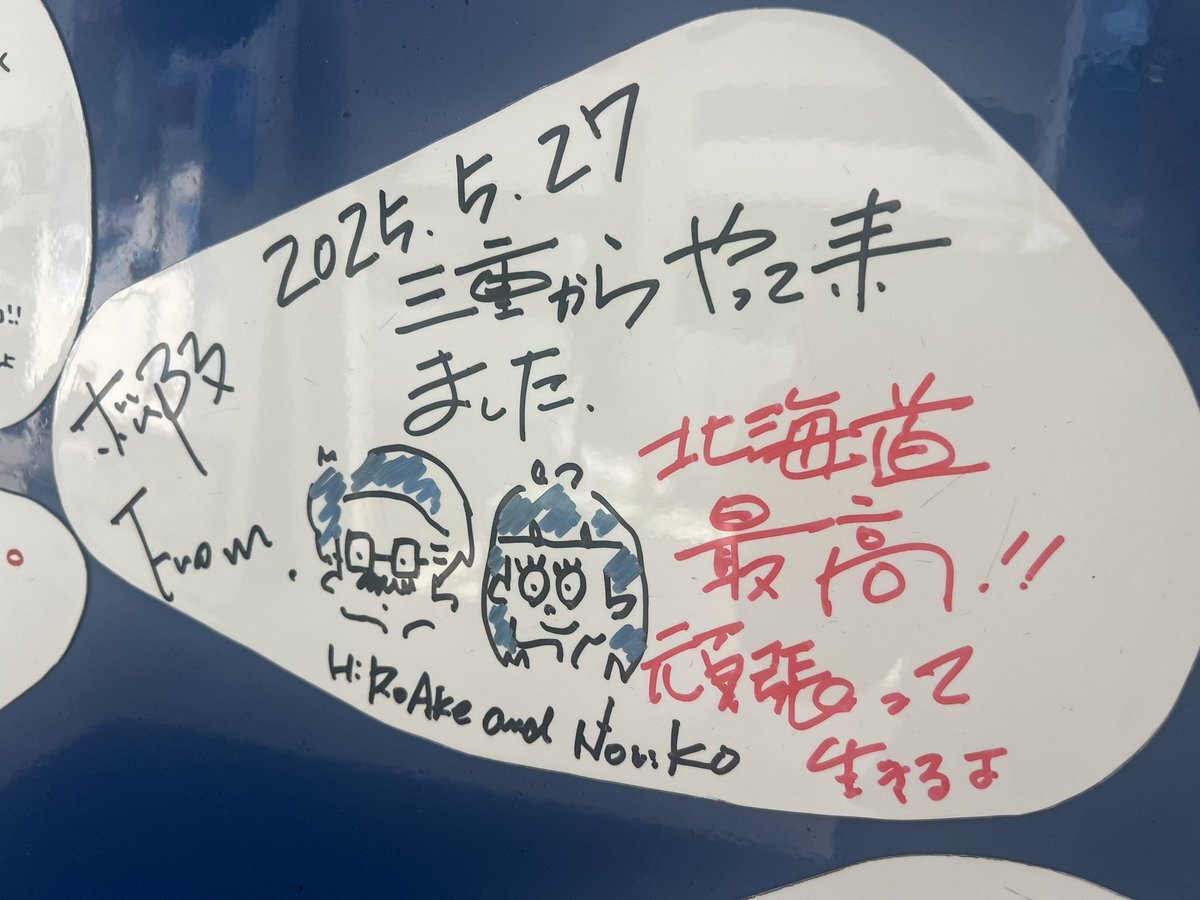 2025.5.27
三重からやって来
ました.
北海道
最高.!!
頑張って
生きるよ
From.
HiRoAke and Noriko